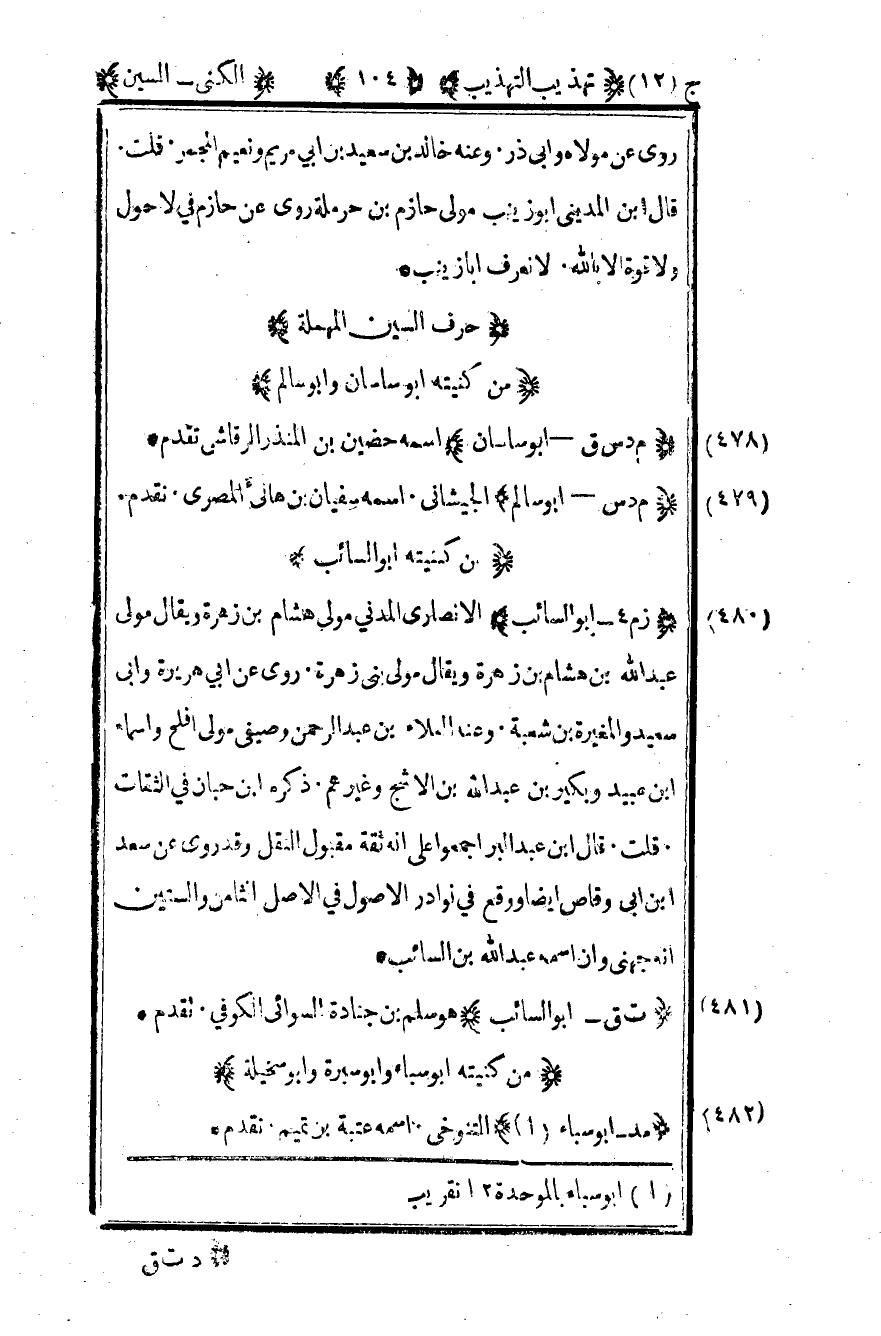 ج (١٢) ﴿ تهذيب التهذيب ﴾ ﴿ ١٠٤ ﴾ ﴿ الكنى ـ السين ﴾
روى عن مولاه وابى ذر · وعنه خالد بن سعيد بن ابي مريم ونعيم المجمر · قلت ·
قال ابن المدينى ابو زينب مولى حازم بن حرملة روى عن حازم في لا حول
ولا قوة الا بالله · لا نعرف ابا زينب *
﴿ حرف السين المهملة ﴾
﴿ من كنيته ابو ساسان وابو سالم ﴾
(٤٧٨) ﴿ م د س ق — ابو ساسان ﴾ اسمه حضين بن المنذر الرقاشى تقدم *
(٤٧٩) ﴿ م د س — ابو سالم ﴾ الجيشانى · اسمه سفيان بن هانئ المصرى · تقدم ·
﴿ من كنيته ابو السائب ﴾
(٤٨٠) ﴿ ز م ٤ ـ ابو السائب ﴾ الانصارى المدني مولى هشام بن زهرة ويقال مولى
عبد الله بن هشام بن زهرة ويقال مولى بنى زهرة · روى عن ابي هريرة وابى
سعيد والمغيرة بن شعبة · وعنه العلاء بن عبد الرحمن وصيفى مولى افلح واسماء
ابن عبيد وبكير بن عبد الله بن الاشج وغيرهم · ذكره ابن حبان في الثقات
· قلت · قال ابن عبد البر اجمعوا على انه ثقة مقبول النقل وقد روى عن سعد
ابن ابى وقاص ايضا ووقع في نوادر الاصول في الاصل الثامن والستين
انه جهنى وان اسمه عبد الله بن السائب *
(٤٨١) ﴿ ت ق ـ ابو السائب ﴾ هو سلم بن جنادة السوائى الكوفي · تقدم *
﴿ من كنيته ابو سباء وابو سبرة وابو سخيلة ﴾
(٤٨٢) ﴿ مد ـ ابو سباء (١) ﴾ التنوخى · اسمه عتبة بن تميم · تقدم *
(١) ابو سباء بالموحدة ١٢ تقريب
﴿ د ت ق